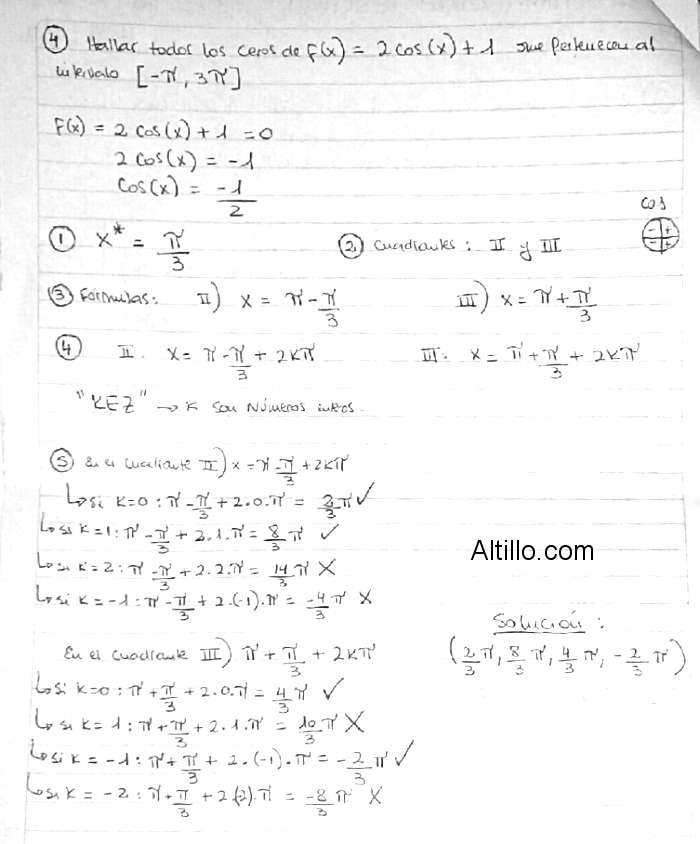 ④ Hallar todos los ceros de F(x) = 2cos(x) + 1 que pertenecen al
intervalo [-π, 3π]
F(x) = 2 cos(x) + 1 = 0
2 cos(x) = -1
Cos(x) = -1/2
cos
① x* = π/3 ② Cuadrantes: II y III
③ Fórmulas: II) x = π - π/3 III) x = π + π/3
④ II. x = π - π/3 + 2kπ III. x = π + π/3 + 2kπ
"KEZ" → K son Números
⑤ En el cuadrante II) x = π - π/3 + 2kπ
↳ si k=0 : π - π/3 + 2.0.π = 2/3 π ✓
↳ si k=1 : π - π/3 + 2.1.π = 8/3 π ✓
↳ si k=2 : π - π/3 + 2.2.π = 14/3 π X
↳ si k=-1 : π - π/3 + 2.(-1).π = -4/3 π X
Altillo.com
Solución :
(2/3 π, 8/3 π, 4/3 π, -2/3 π)
En el cuadrante III) π + π/3 + 2kπ
↳ si k=0 : π + π/3 + 2.0.π = 4/3 π ✓
↳ si k=1 : π + π/3 + 2.1.π = 10/3 π X
↳ si k = -1 : π + π/3 + 2.(-1).π = -2/3 π ✓
↳ si k = -2 : π + π/3 + 2(-2).π = -8/3 π X